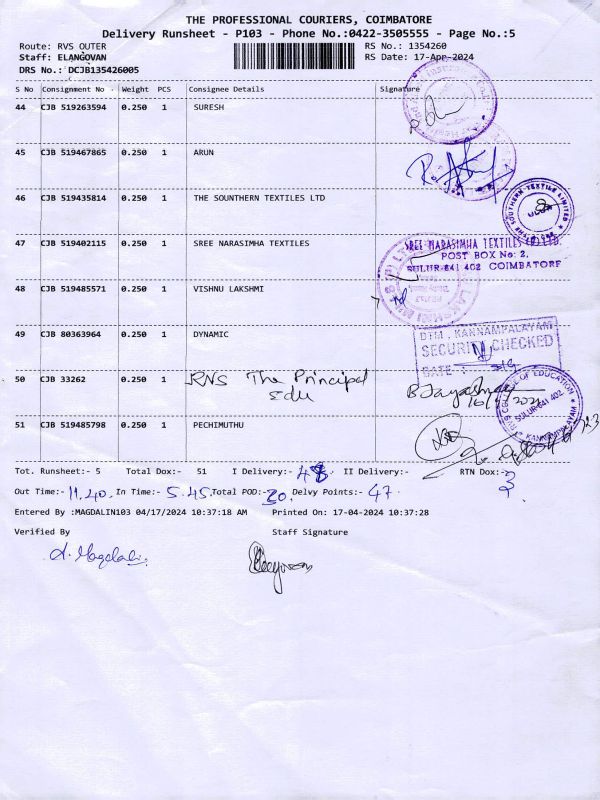 THE PROFESSIONAL COURIERS, COIMBATORE
Delivery Runsheet - P103 - Phone No.:0422-3505555 - Page No.:5
Route: RVS OUTER RS No.: 1354260
Staff: ELANGOVAN RS Date: 17-Apr-2024
DRS No.: DCJB135426005
S No Consignment No Weight PCS Consignee Details Signature
44 CJB 519263594 0.250 1 SURESH
45 CJB 519467865 0.250 1 ARUN
46 CJB 519435814 0.250 1 THE SOUNTHERN TEXTILES LTD
THE SOUTHERN TEXTILE LIMITED
47 CJB 519402115 0.250 1 SREE NARASIMHA TEXTILES
SREE NARASIMHA TEXTILES (P) LTD.
POST BOX No: 2,
SULUR-641 402 COIMBATORE
48 CJB 519485571 0.250 1 VISHNU LAKSHMI
49 CJB 80363964 0.250 1 DYNAMIC
DTM, KANNAMPALAYAM
SECURITY CHECKED
DATE:
50 CJB 33262 0.250 1 RNS The Principal
Edu
COLLEGE OF EDUCATION
SULUR-641 402
KANNAMPALAYAM
51 CJB 519485798 0.250 1 PECHIMUTHU
Tot. Runsheet:- 5 Total Dox:- 51 I Delivery:- 48 II Delivery:- RTN Dox:- 3
Out Time:- 11.40, In Time:- 5.45, Total POD:- 30, Delvy Points:- 47
Entered By :MAGDALIN103 04/17/2024 10:37:18 AM Printed On: 17-04-2024 10:37:28
Verified By Staff Signature